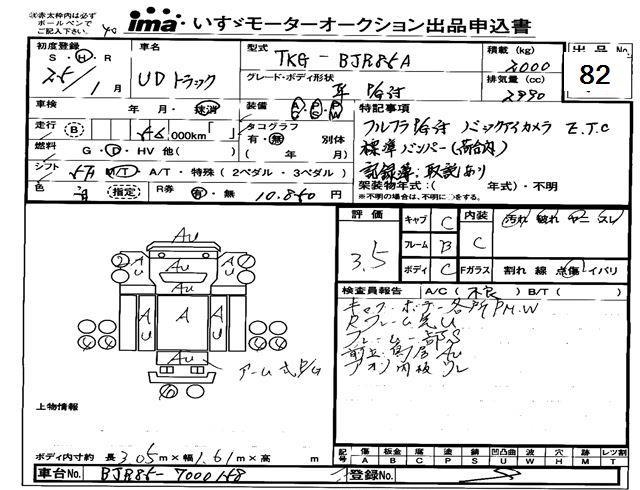 ㊟赤太枠内は必ず
ボールペンで
ご記入下さい。
ima いすゞモーターオークション出品申込書
初度登録 S・H・R
25年1月
車名 UDトラック
型式 TKG-BJR85A
グレード・ボディ形状
積載 (kg) 2000
排気量 (cc) 2990
出品No. 82
車検 年 月・抹消
装備
走行 B 000km
タコグラフ 有・無 別体 (年 月)
燃料 G・D・HV 他( )
シフト 5F M/T・A/T・特殊(2ペダル・3ペダル)
色 (指定) R券 有・無 10.850円
特記事項
バックアイカメラ E.T.C
標準バンパー(荷台内)
記録簿・取説あり
架装物年式:( 年式)・不明
※不明の場合は、不明に○をする。
評価 3.5
キャブ C
フレーム B
ボディ C
内装 C
汚れ 破れ ヤニ スレ
Fガラス 割れ 線 点傷 イバリ
検査員報告 A/C(不良) B/T( )
キャブ・ボデー各所P.M.W
フレーム一部S
アオリ内板
アーム式P/G
上物情報
ボディ内寸約 長3.05m×幅1.61m×高 m
記号 傷A 板金B 腐C 塗P 錆S 凹凸曲U 波W 穴H 跡M レツ割T
車台No. BJR85-7000158
登録No.